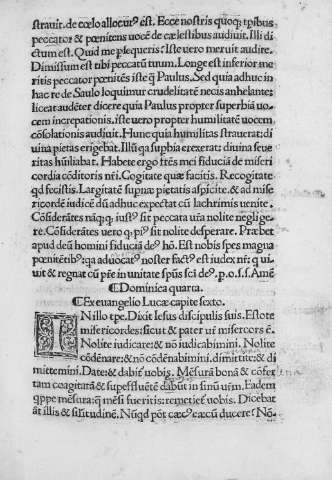 strauit. de cœlo allocut᷒ est. Ecce nostris quoq; tp̄ibus
peccator & pœnitens uocē de cælestibus audiuit. Illi di
ctum est. Quid me plequeris: Iste vero meruit audire.
Dimissum est tibi peccatū tuum. Longe est inferior me
ritis peccator pœnitēs iste q̄ Paulus. Sed quia adhuc in
hac re de Saulo loquimur crudelitatē necis anhelante:
liceat audēter dicere quia Paulus propter superbiā uo-
cem increpationis, iste vero propter humilitatē uocem
cōsolationis audiuit. Hunc quia humilitas strauerat: di
uina pietas erigebat. Illū qa supbia erexerat: diuina seue
ritas hūiliabat. Habete ergo frēs mei fiduciā de miseri
cordia cōditoris nr̄i. Cogitate quæ facitis. Recogitate
qd fecistis. Largitatē supnæ pietatis aspicite. & ad mise
ricordē iudicē dū adhuc expectat cū lachrimis uenite.
Cōsiderātes nāq; q iust᷒ sit peccata vr̄a nolite neglige-
re. Cōsiderātes vero q pi᷒ sit nolite desperare. Præbet
apud deū homini fiduciā de᷒ hō. Est nobis spes magna
pœnitētib᷒: qa aduocat᷒ noster fact᷒ est iudex nr̄: q ui-
uit & regnat cū pr̄e in unitate spūs sci de᷒. p. o. s. s. Amē
¶Dominica quarta.
¶Ex euangelio Lucæ capite sexto.
IN illo tpe. Dixit Iesus discipulis suis. Estote
misericordes: sicut & pater vr̄ misercors ē.
Nolite iudicare: & nō iudicabimini. Nolite
cōdēnare: & nō cōdēnabimini. dimittite: & di
mittemini. Date: & dabit᷒ uobis. Mēsurā bonā & cōfer
tam coagitatā & supeffluētē dabūt in sinū vr̄m. Eadem
qppe mēsura: q mēsi fueritis: remetiet᷒ uobis. Dicebat
āt illis & similitudinē. Nūqd pōt cæc᷒ cæcū ducere: Nō-